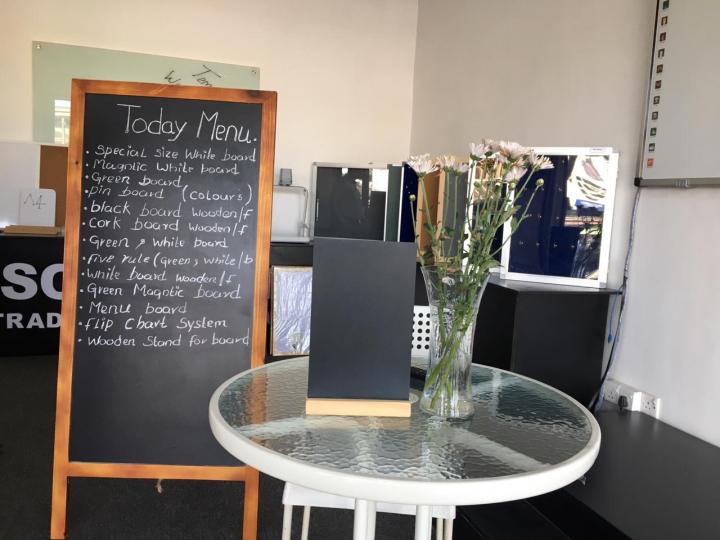 Today Menu.
• Special size White board
• Magntic White board
• Green board
• pin board (colours)
• black board wooden/f
• Cork board wooden/f
• Green, white board
• five rule (Green, white/b
• White board wooden/f
• Green Magntic board
• Menu board
• flip Chart System
• Wooden Stand for board
A4
SC
TRAD